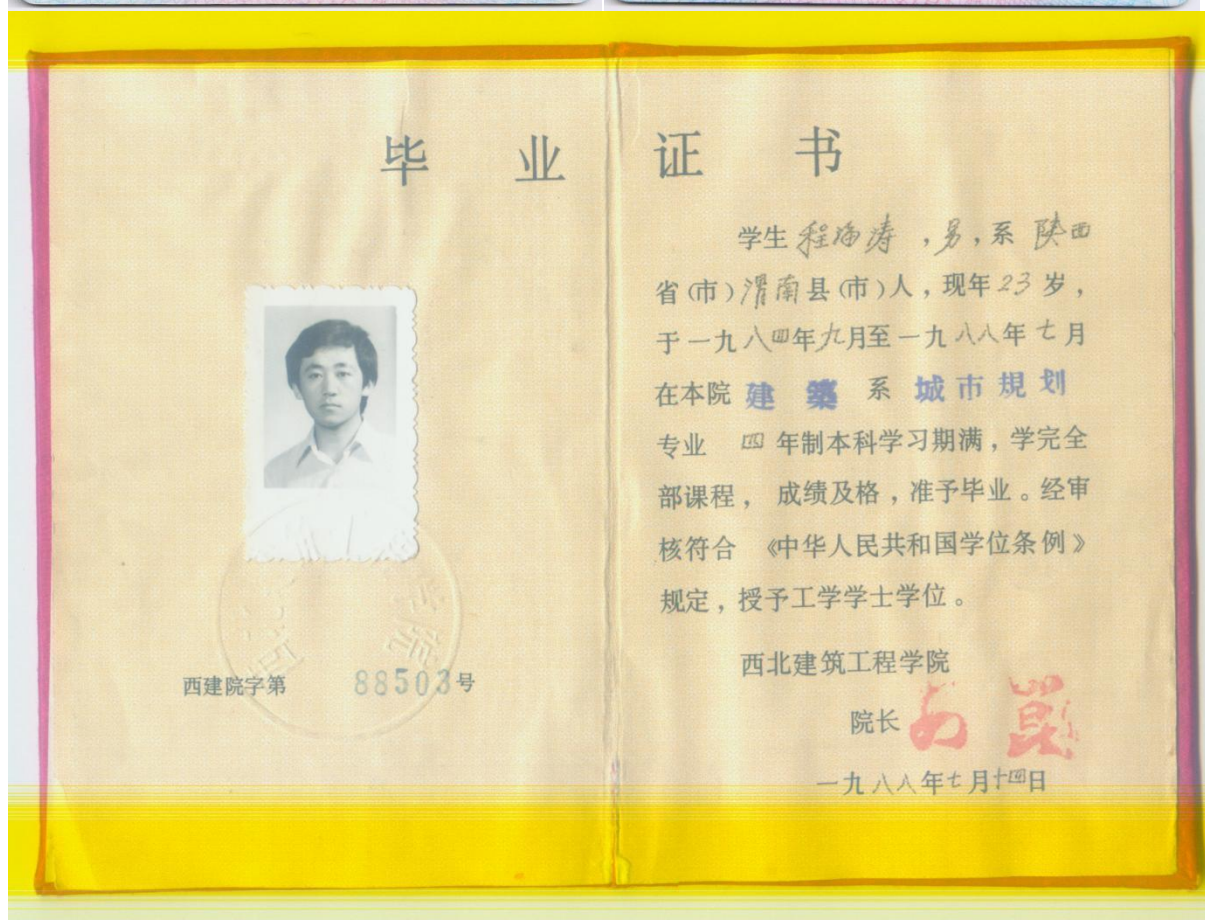 毕业证书
学生程海涛,男,系陕西
省(市)渭南县(市)人,现年23岁,
于一九八四年九月至一九八八年七月
在本院建築系城市規划
专业四年制本科学习期满,学完全
部课程,成绩及格,准予毕业。经审
核符合《中华人民共和国学位条例》
规定,授予工学学士学位。
西北建筑工程学院
院长
一九八八年七月十四日
西建院字第88503号